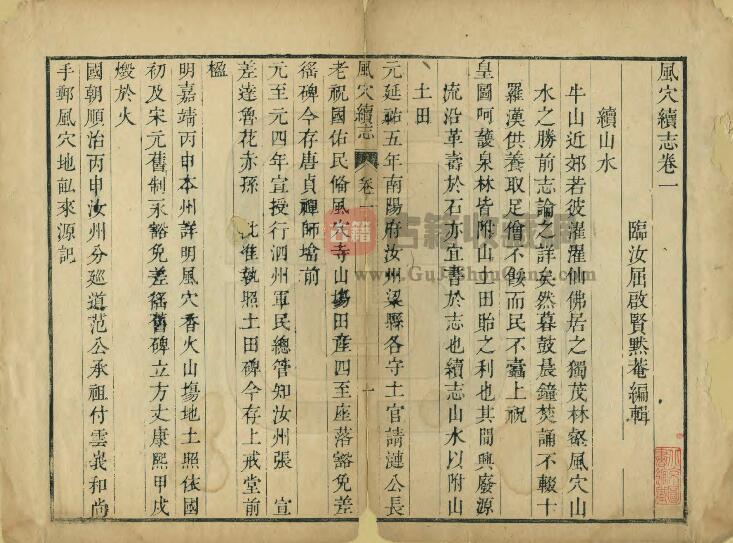 風穴續志卷一
臨汝屈啟賢黙菴編輯
續山水
牛山近郊若彼濯濯仙佛居之獨茂林壑風穴山
水之勝前志論之詳矣然暮鼓晨鐘焚誦不輟十
羅漢供養取足僧不飯而民不蠹上祝
皇圖呵護泉林皆附山土田貽之利也其間興廢源
流沿革壽於石亦宜書於志也續志山水以附山
土田
元延祐五年南陽府汝州梁縣各守土官請漣公長
風穴續志
卷一
一
老祝國佑民脩風穴寺山塲田產四至座落豁免差
徭碑今存唐貞禪師塔前
元至元四年宣授行泗州軍民總管知汝州張 宣
差達魯花赤孫 此准執照土田碑今存上戒堂前
楹
明嘉靖丙申本州詳明風穴香火山塲地土照依國
初及宋元舊制永豁免差徭舊碑立方丈康熙甲戌
燬於火
國朝順治丙申汝州分廵道范公承祖付雲峩和尚
手郵風穴地畝來源記
古籍
古籍收藏
www.GuJiShuCang.com